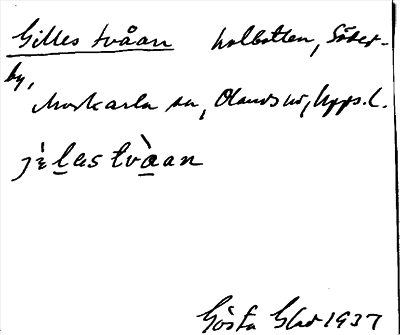 Gilles tvåan hålbotten, Söder-
by,
Morkarla sn, Olands hd, Upps. l.
jìlas tvàan
Gösta 1937